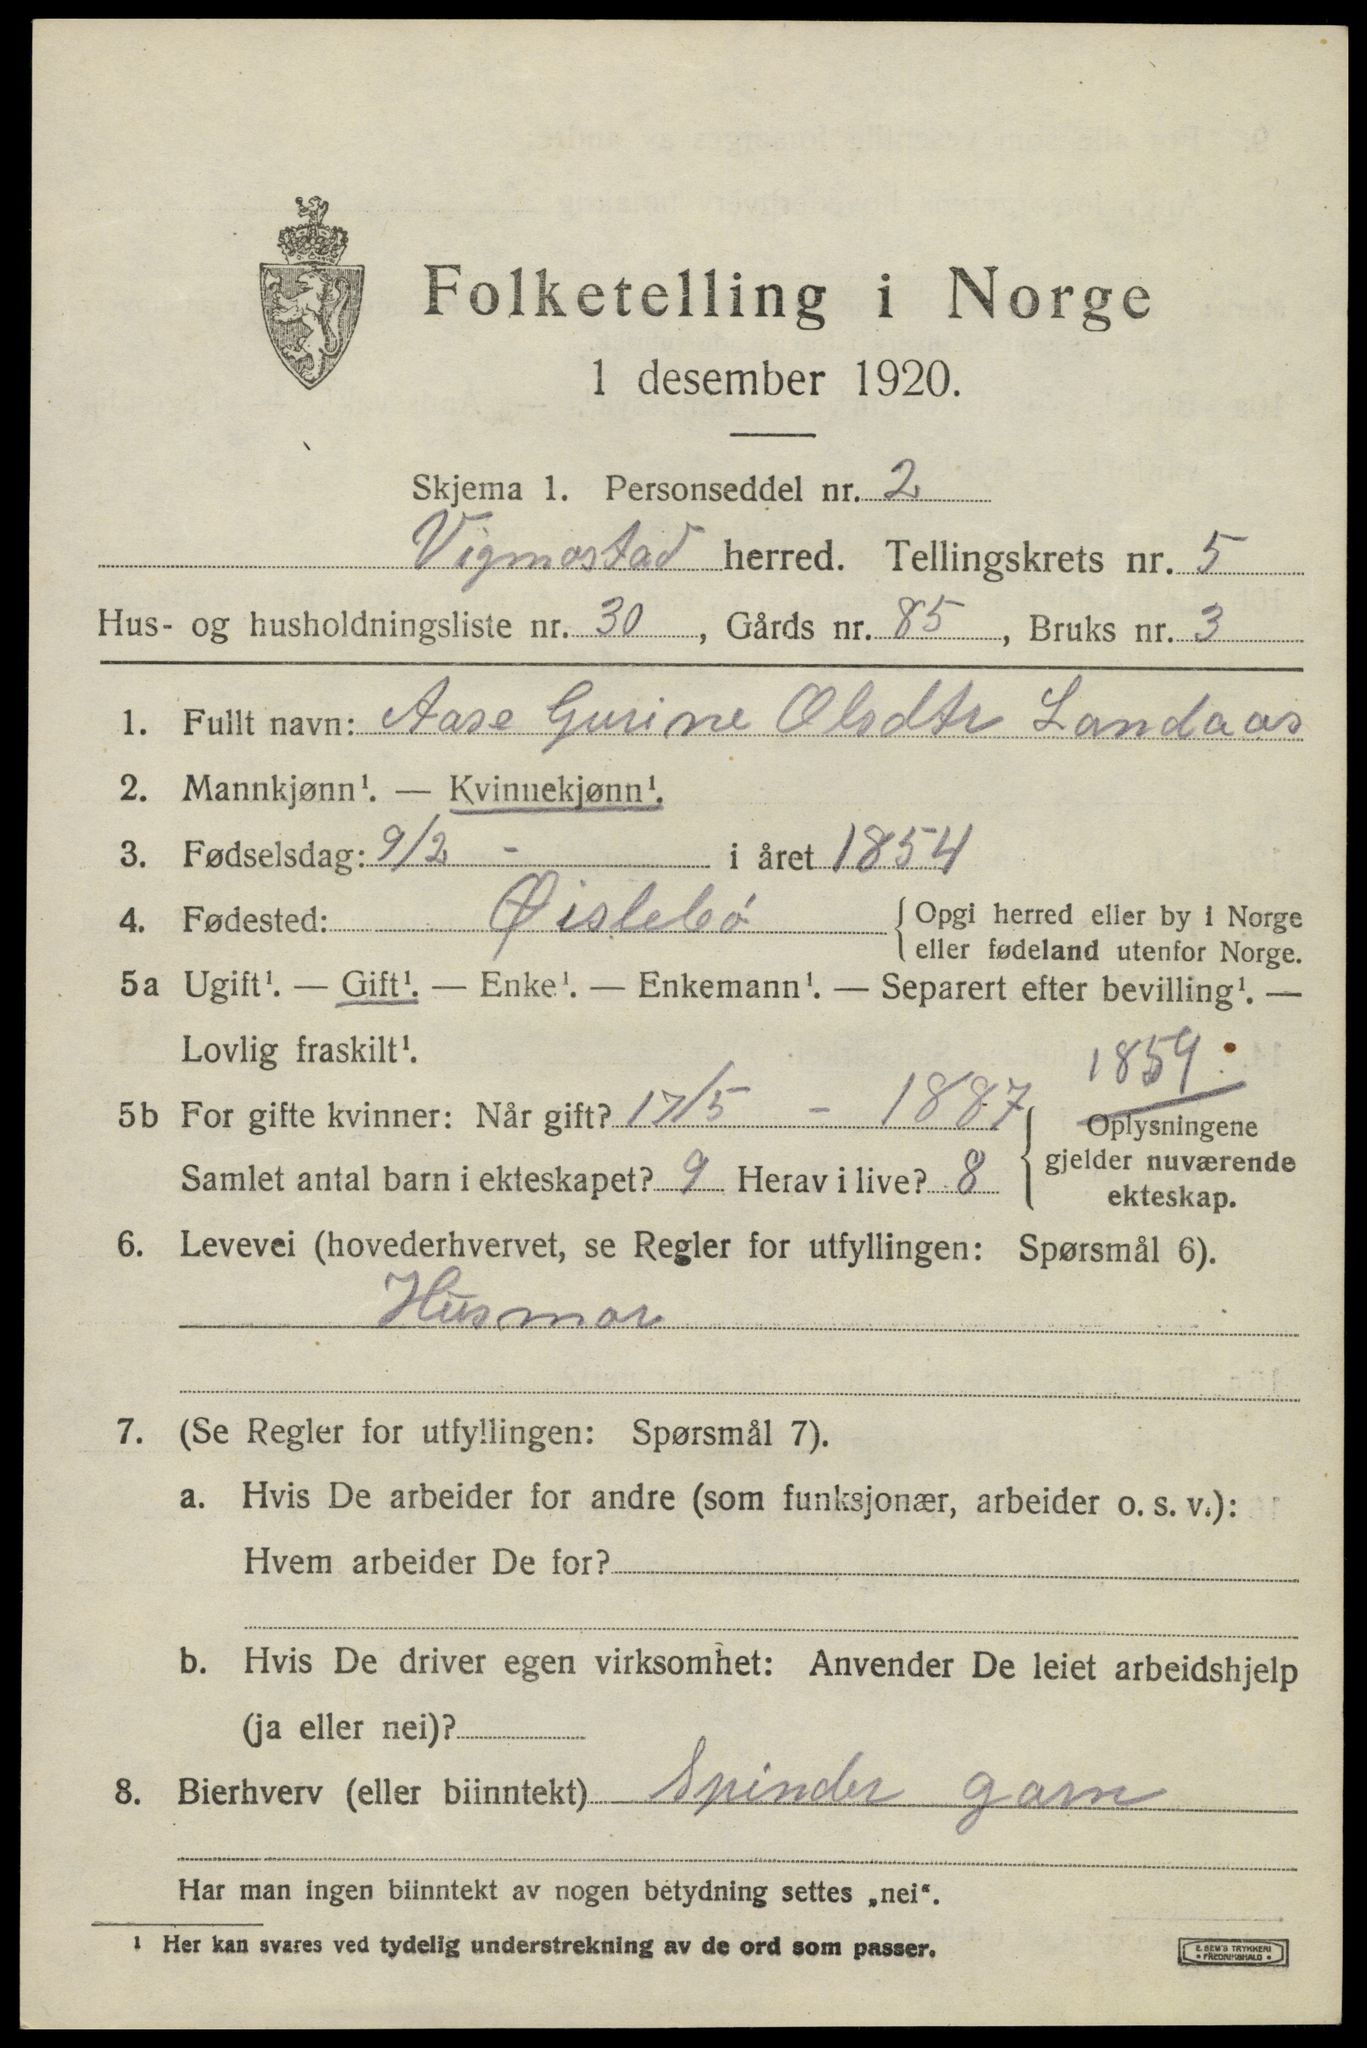 Folketelling i Norge
1 desember 1920.
Skjema 1. Personseddel nr. 2
Vigmostad herred. Tellingskrets nr. 5
Hus- og husholdningsliste nr. 30, Gårds nr. 85, Bruks nr. 3
1. Fullt navn: Aase Gurine Olsdtr Landaas
2. Mannkjønn¹. — Kvinnekjønn¹.
3. Fødselsdag: 9/2 - i året 1854
4. Fødested: Øislebö { Opgi herred eller by i Norge
eller fødeland utenfor Norge.
5a Ugift¹. — Gift¹. — Enke¹. — Enkemann¹. — Separert efter bevilling¹. —
Lovlig fraskilt¹.
1859
5b For gifte kvinner: Når gift? 17/5 - 1887 { Oplysningene
gjelder nuværende
ekteskap.
Samlet antal barn i ekteskapet? 9 Herav i live? 8
6. Levevei (hovederhvervet, se Regler for utfyllingen: Spørsmål 6).
Husmor
7. (Se Regler for utfyllingen: Spørsmål 7).
a. Hvis De arbeider for andre (som funksjonær, arbeider o. s. v.):
Hvem arbeider De for?
b. Hvis De driver egen virksomhet: Anvender De leiet arbeidshjelp
(ja eller nei)?
8. Bierhverv (eller biinntekt) Spinder garn
Har man ingen biinntekt av nogen betydning settes „nei“.
¹ Her kan svares ved tydelig understrekning av de ord som passer.
E. SEM'S TRYKKERI
• FREDRIKSHALD •